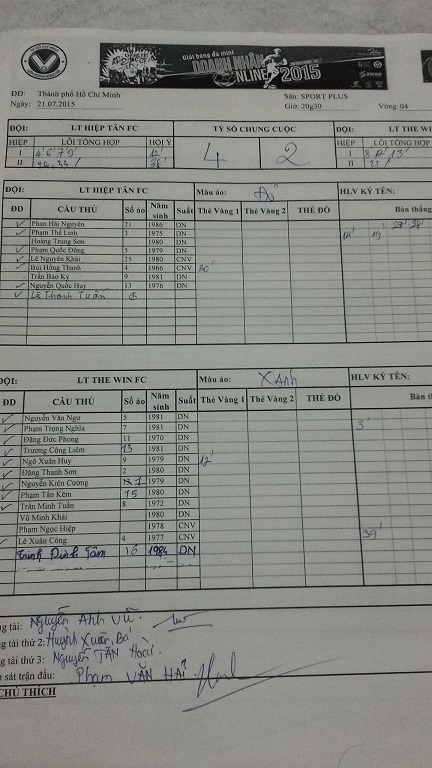 Giải bóng đá mini
DOANH NHÂN
ONLINE 2015
ĐĐ: Thành phố Hồ Chí Minh Sân: SPORT PLUS
Ngày: 21.07.2015 Giờ: 20g30 Vòng: 04
ĐỘI: LT HIỆP TÂN FC TỶ SỐ CHUNG CUỘC ĐỘI: LT THE W
HIỆP LỖI TỔNG HỢP HỘI Ý 4 2 HIỆP LỖI TỔNG HỢP
I 4' 6' 7' 9' 12' I 13'
II 38' II 21'
ĐỘI: LT HIỆP TÂN FC Màu áo: HLV KÝ TÊN:
ĐD CẦU THỦ Số áo Năm sinh Suất Thẻ Vàng 1 Thẻ Vàng 2 THẺ ĐỎ Bàn thắng
Phan Hải Nguyên 21 1986 DN
Phạm Thế Linh 3 1975 DN 19
Hoàng Trung Sơn 1980 DN
Phạm Quốc Đông 5 1979 DN
Lê Nguyên Khải 25 1980 CNV
Bùi Hồng Thanh 4 1966 CNV 30'
Trần Bảo Ký 9 1981 DN
Nguyễn Quốc Huy 13 1976 DN
Lê Thanh Tuấn
ĐỘI: LT THE WIN FC Màu áo: Xanh HLV KÝ TÊN:
ĐD CẦU THỦ Số áo Năm sinh Suất Thẻ Vàng 1 Thẻ Vàng 2 THẺ ĐỎ Bàn th
Nguyễn Văn Ngư 5 1981 DN 3'
Phạm Trọng Nghĩa 7 1981 DN
Đặng Đức Phong 11 1970 DN
Trương Công Liêm 13 1981 DN
Ngô Xuân Huy 9 1979 DN 12'
Đặng Thanh Sơn 2 1980 DN
Nguyễn Kiên Cường 1 1979 DN
Phạm Tấn Kẽm 15 1980 DN
Trần Minh Tuấn 8 1972 DN
Vũ Minh Khải 1980 DN
Phạm Ngọc Hiệp 1978 CNV
Lê Xuân Công 4 1977 CNV 39'
Trịnh Đình Tâm 16 1984 DN
ng tài: Nguyễn Anh Vũ
ng tài thứ 2: Huỳnh Xuân Bá
ng tài thứ 3: Nguyễn Tấn Hoài
m sát trận đấu: Phạm Văn Hải
CHÚ THÍCH